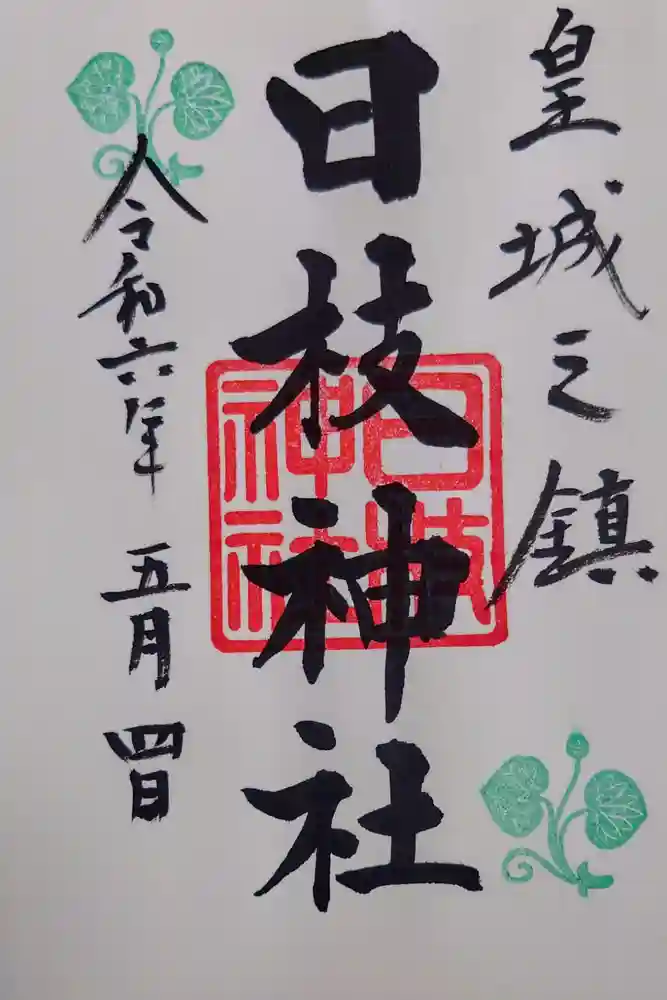 皇城之鎮
日枝神社
日枝神社
令和六年五月四日